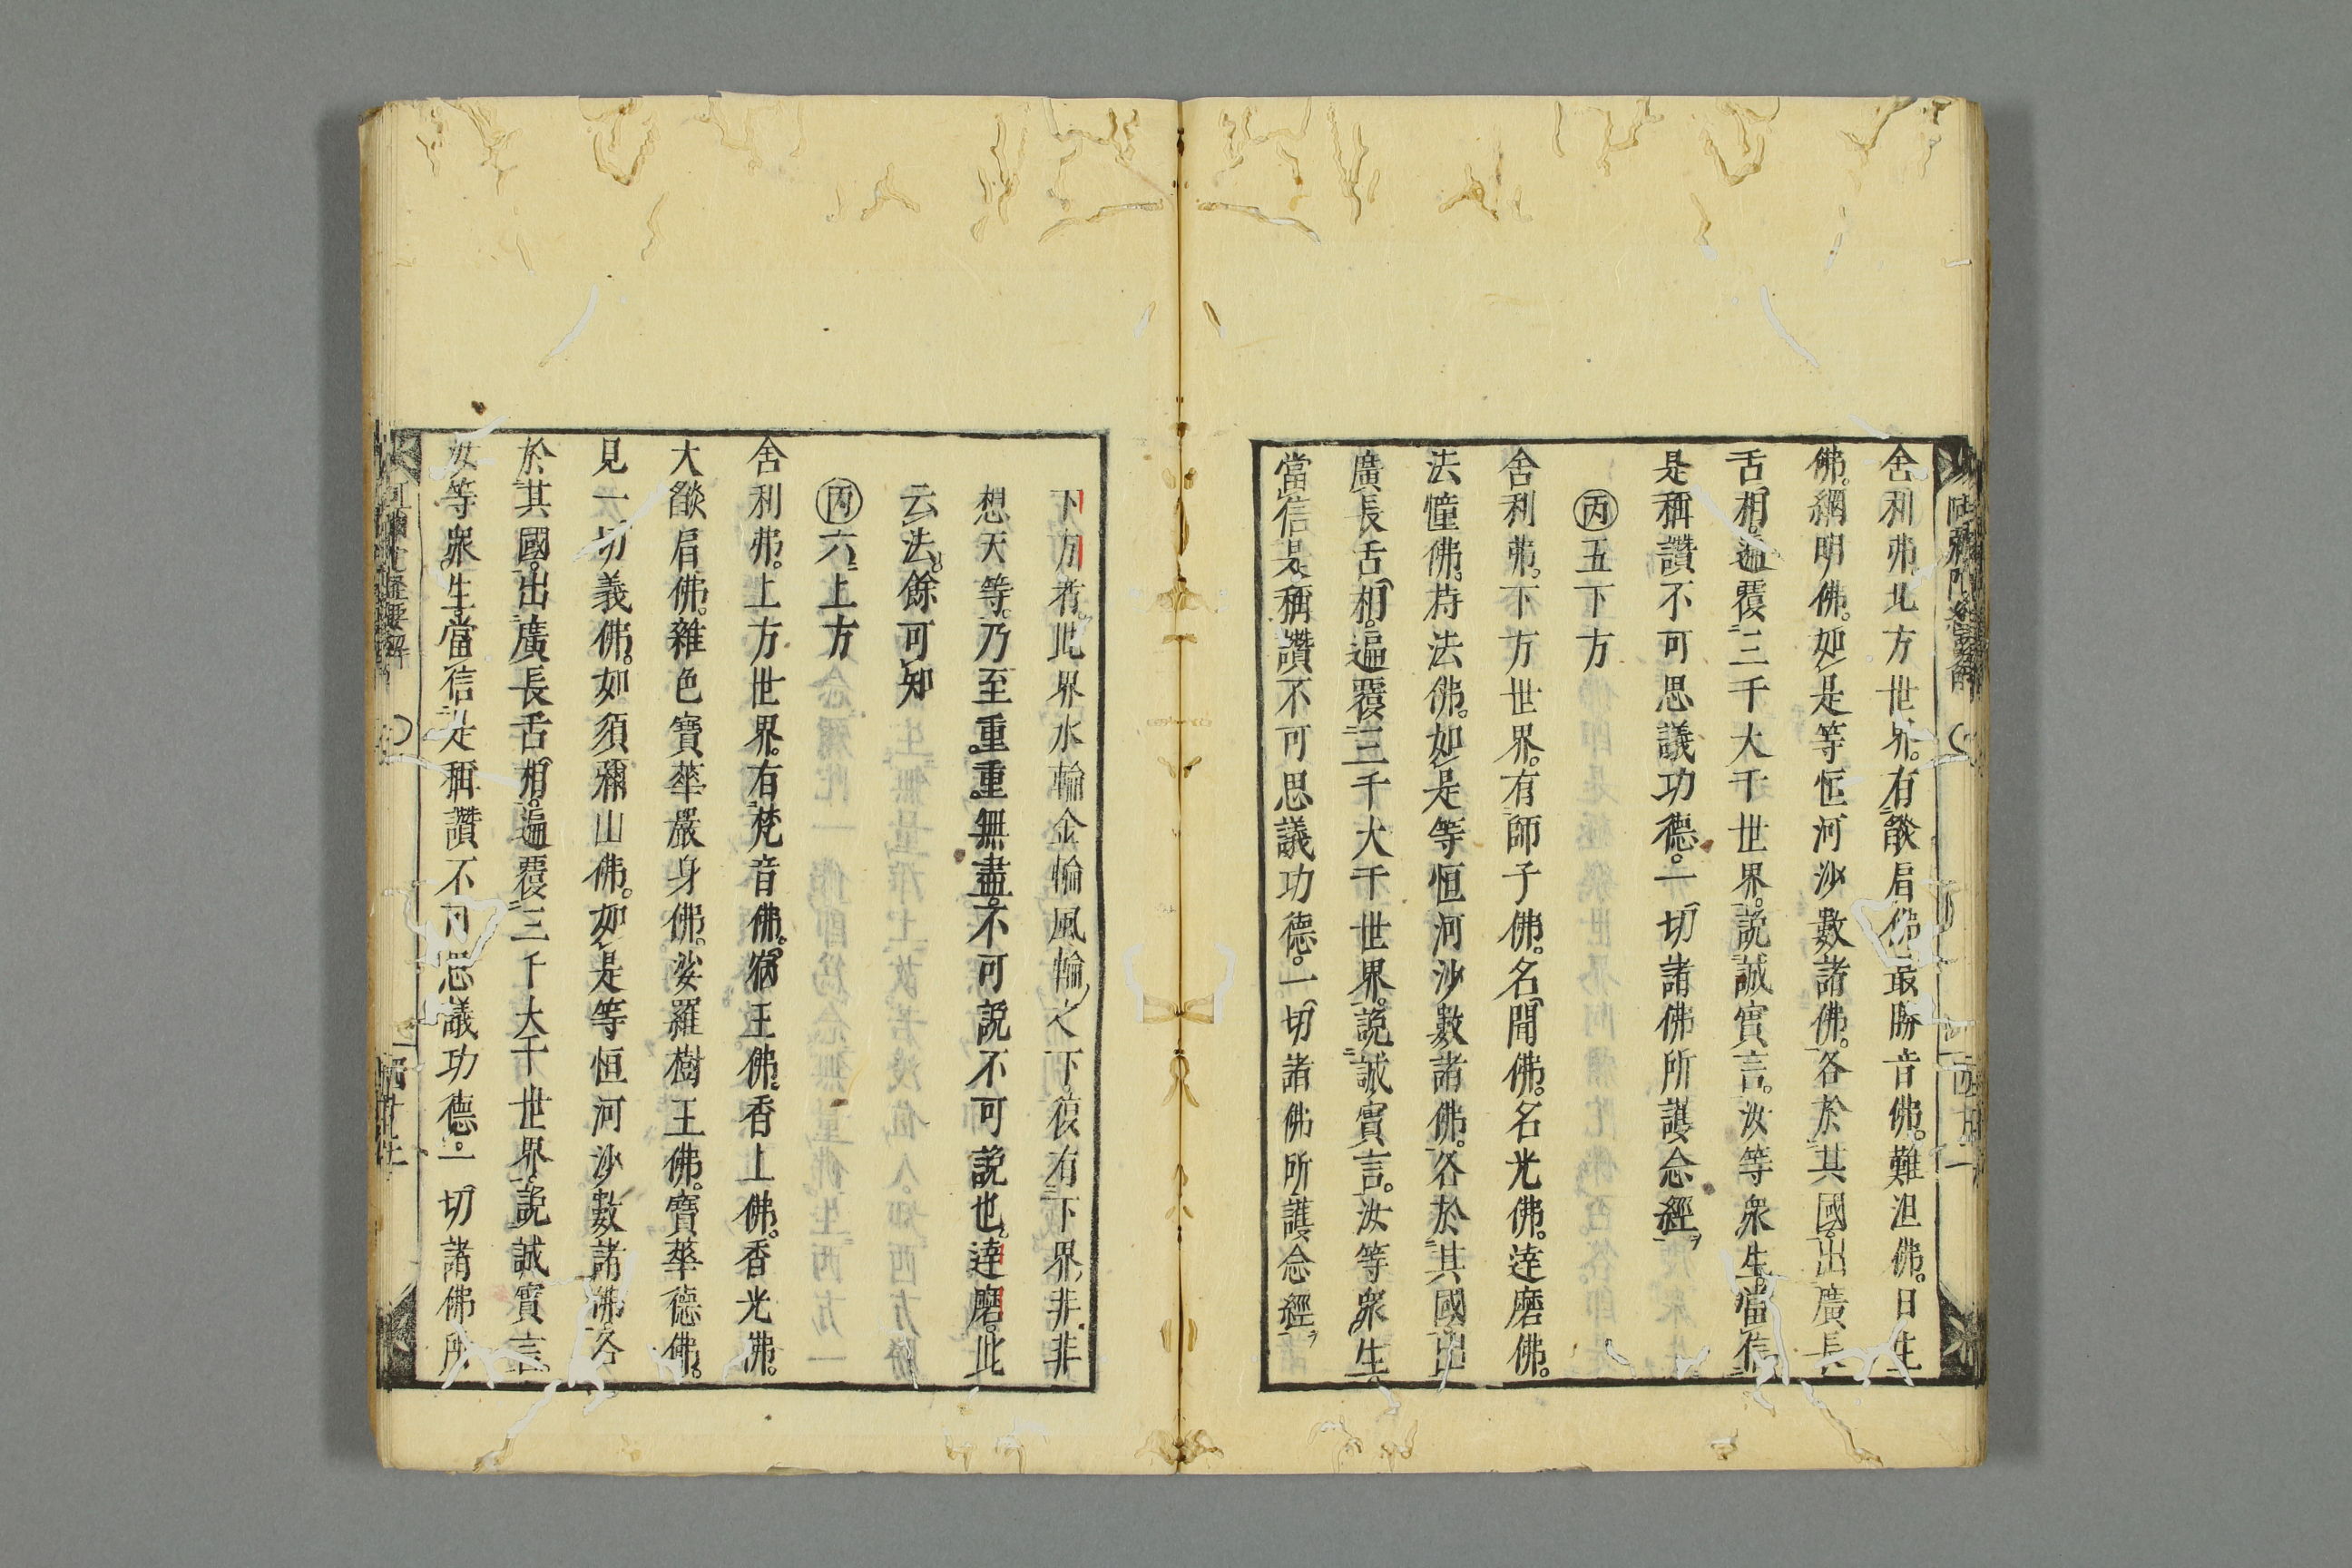 舍利弗。北方世界。有燄肩佛。最勝音佛。難沮佛。日生
佛。網明佛。如是等恒河沙數諸佛。各於其國。出廣長
舌相。遍覆三千大千世界。説誠實言。汝等衆生。當信
是稱讚不可思議功德。一切諸佛所護念經。
丙五下方
舍利弗。下方世界。有師子佛。名聞佛。名光佛。達磨佛。
法幢佛。持法佛。如是等恒河沙數諸佛。各於其國出
廣長舌相。遍覆三千大千世界。説誠實言。汝等衆生。
當信是稱讚不可思議功德。一切諸佛所護念經。
下方者。此界水輪金輪風輪之下復有下界。非非
想天等。乃至重重無盡。不可説不可説也。達磨。此
云法。餘可知
丙六上方
舍利弗。上方世界。有梵音佛。宿王佛。香上佛。香光佛。
大燄肩佛。雜色寶華嚴身佛。娑羅樹王佛。寶華德佛。
見一切義佛。如須彌山佛。如是等恒河沙數諸佛。各
於其國。出廣長舌相。遍覆三千大千世界。説誠實言。
汝等衆生。當信是稱讚不可思議功德。一切諸佛所